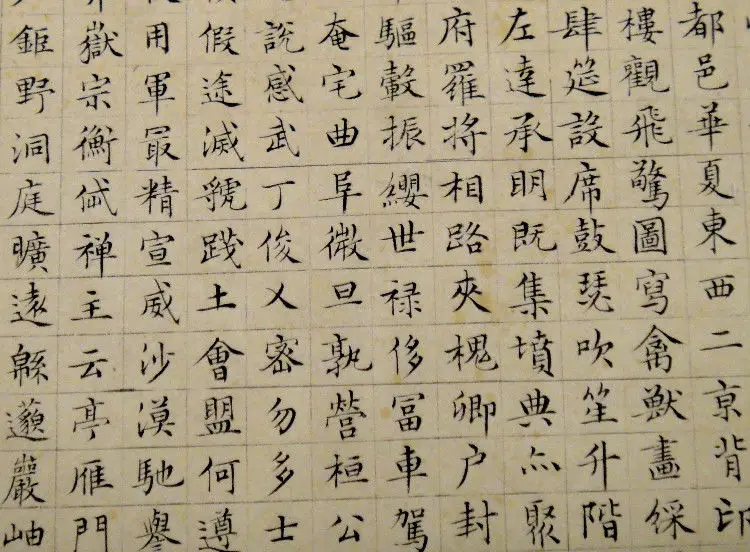 都邑華夏東西二亰背邙
樓觀飛驚圖寫禽獸畫綵
肆筵設席鼓瑟吹笙升階
左達承眀既集墳典亦聚
府羅將相路夾槐卿户封
驅轂振纓世禄侈冨車駕
奄宅曲阜微旦孰營桓公
說感武丁俊乂密勿多士
假途滅虢踐土會盟何遵
用軍最精宣威沙漠馳譽
嶽宗衡岱禪主云亭雁門
鉅野洞庭曠遠緜邈巖岫